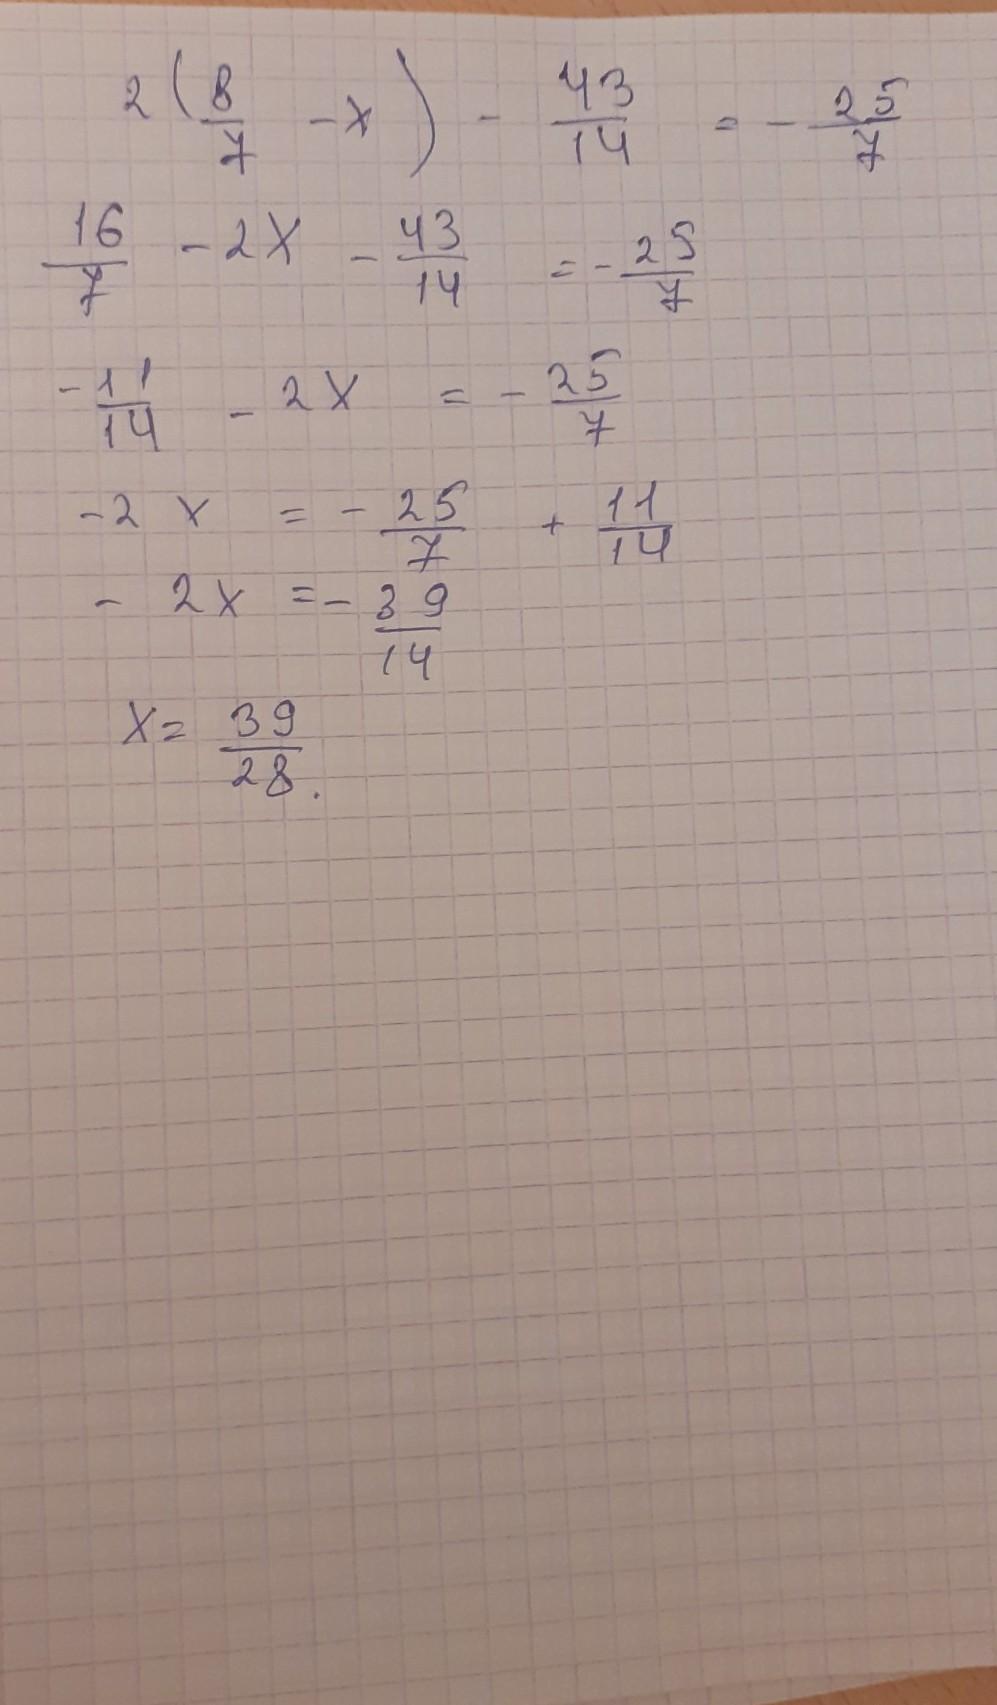 2(8/7 - x) - 43/14 = - 25/7
16/7 - 2x - 43/14 = - 25/7
- 11/14 - 2x = - 25/7
-2x = - 25/7 + 11/14
- 2x = - 39/14
x = 39/28.